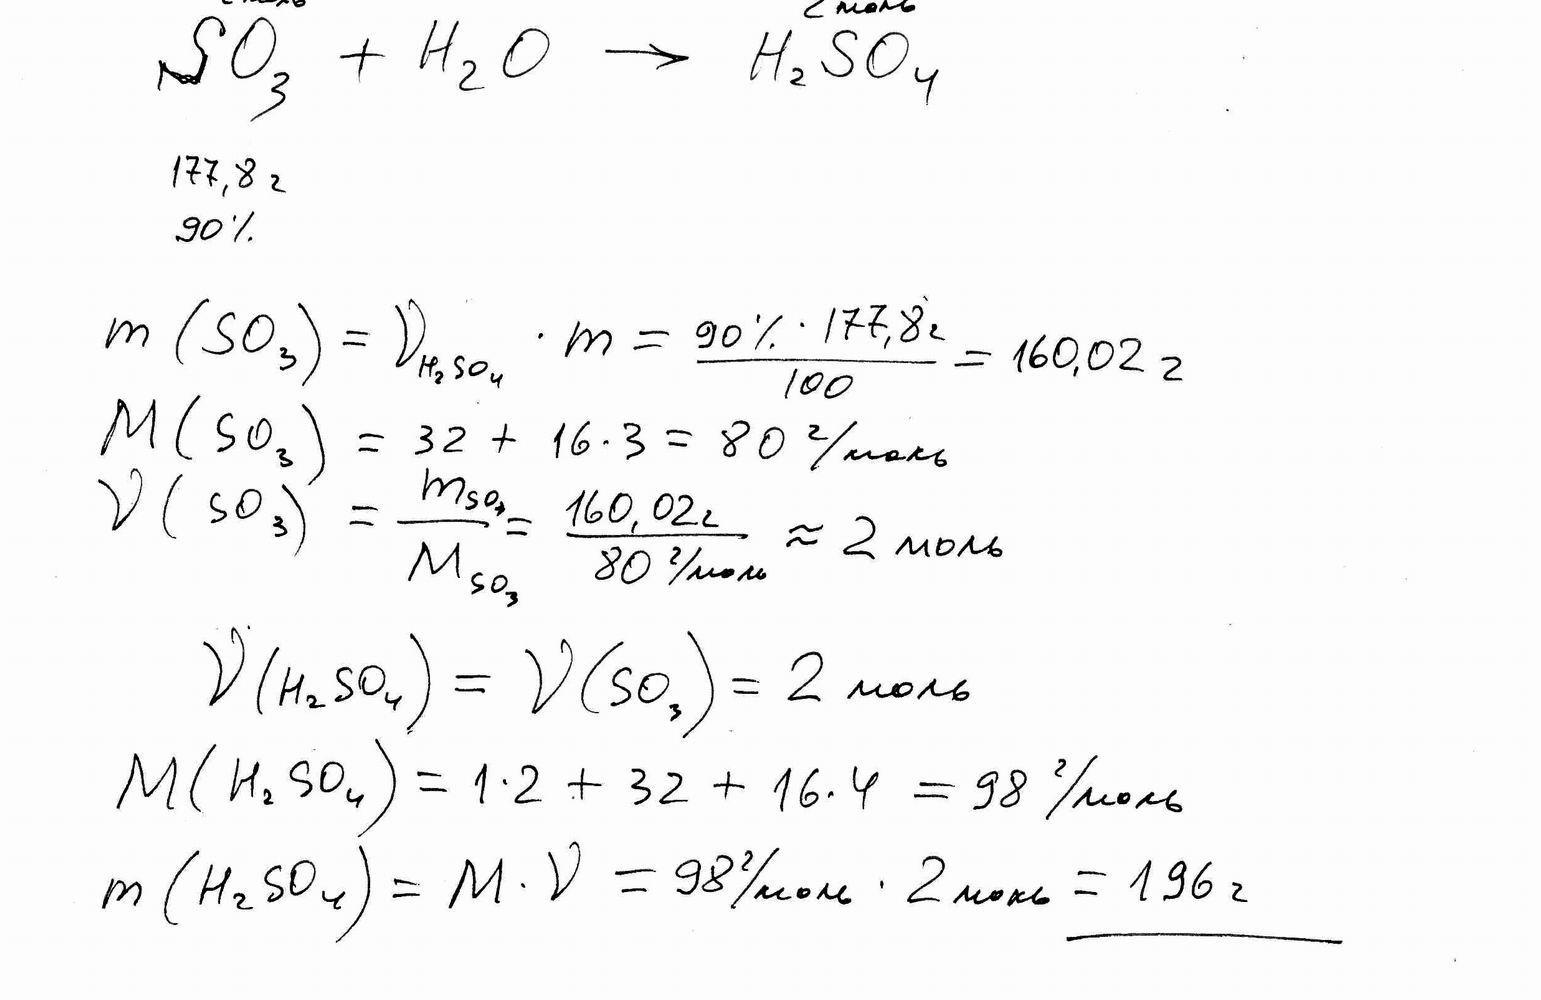 2 моль
SO₃ + H₂O → H₂SO₄
177,8 г
90%
m(SO₃) = ν_H₂SO₄ · m = 90% · 177,8г / 100 = 160,02 г
M(SO₃) = 32 + 16·3 = 80 г/моль
ν(SO₃) = m_SO₃ / M_SO₃ = 160,02г / 80 г/моль ≈ 2 моль
ν(H₂SO₄) = ν(SO₃) = 2 моль
M(H₂SO₄) = 1·2 + 32 + 16·4 = 98 г/моль
m(H₂SO₄) = M·ν = 98 г/моль · 2 моль = 196 г